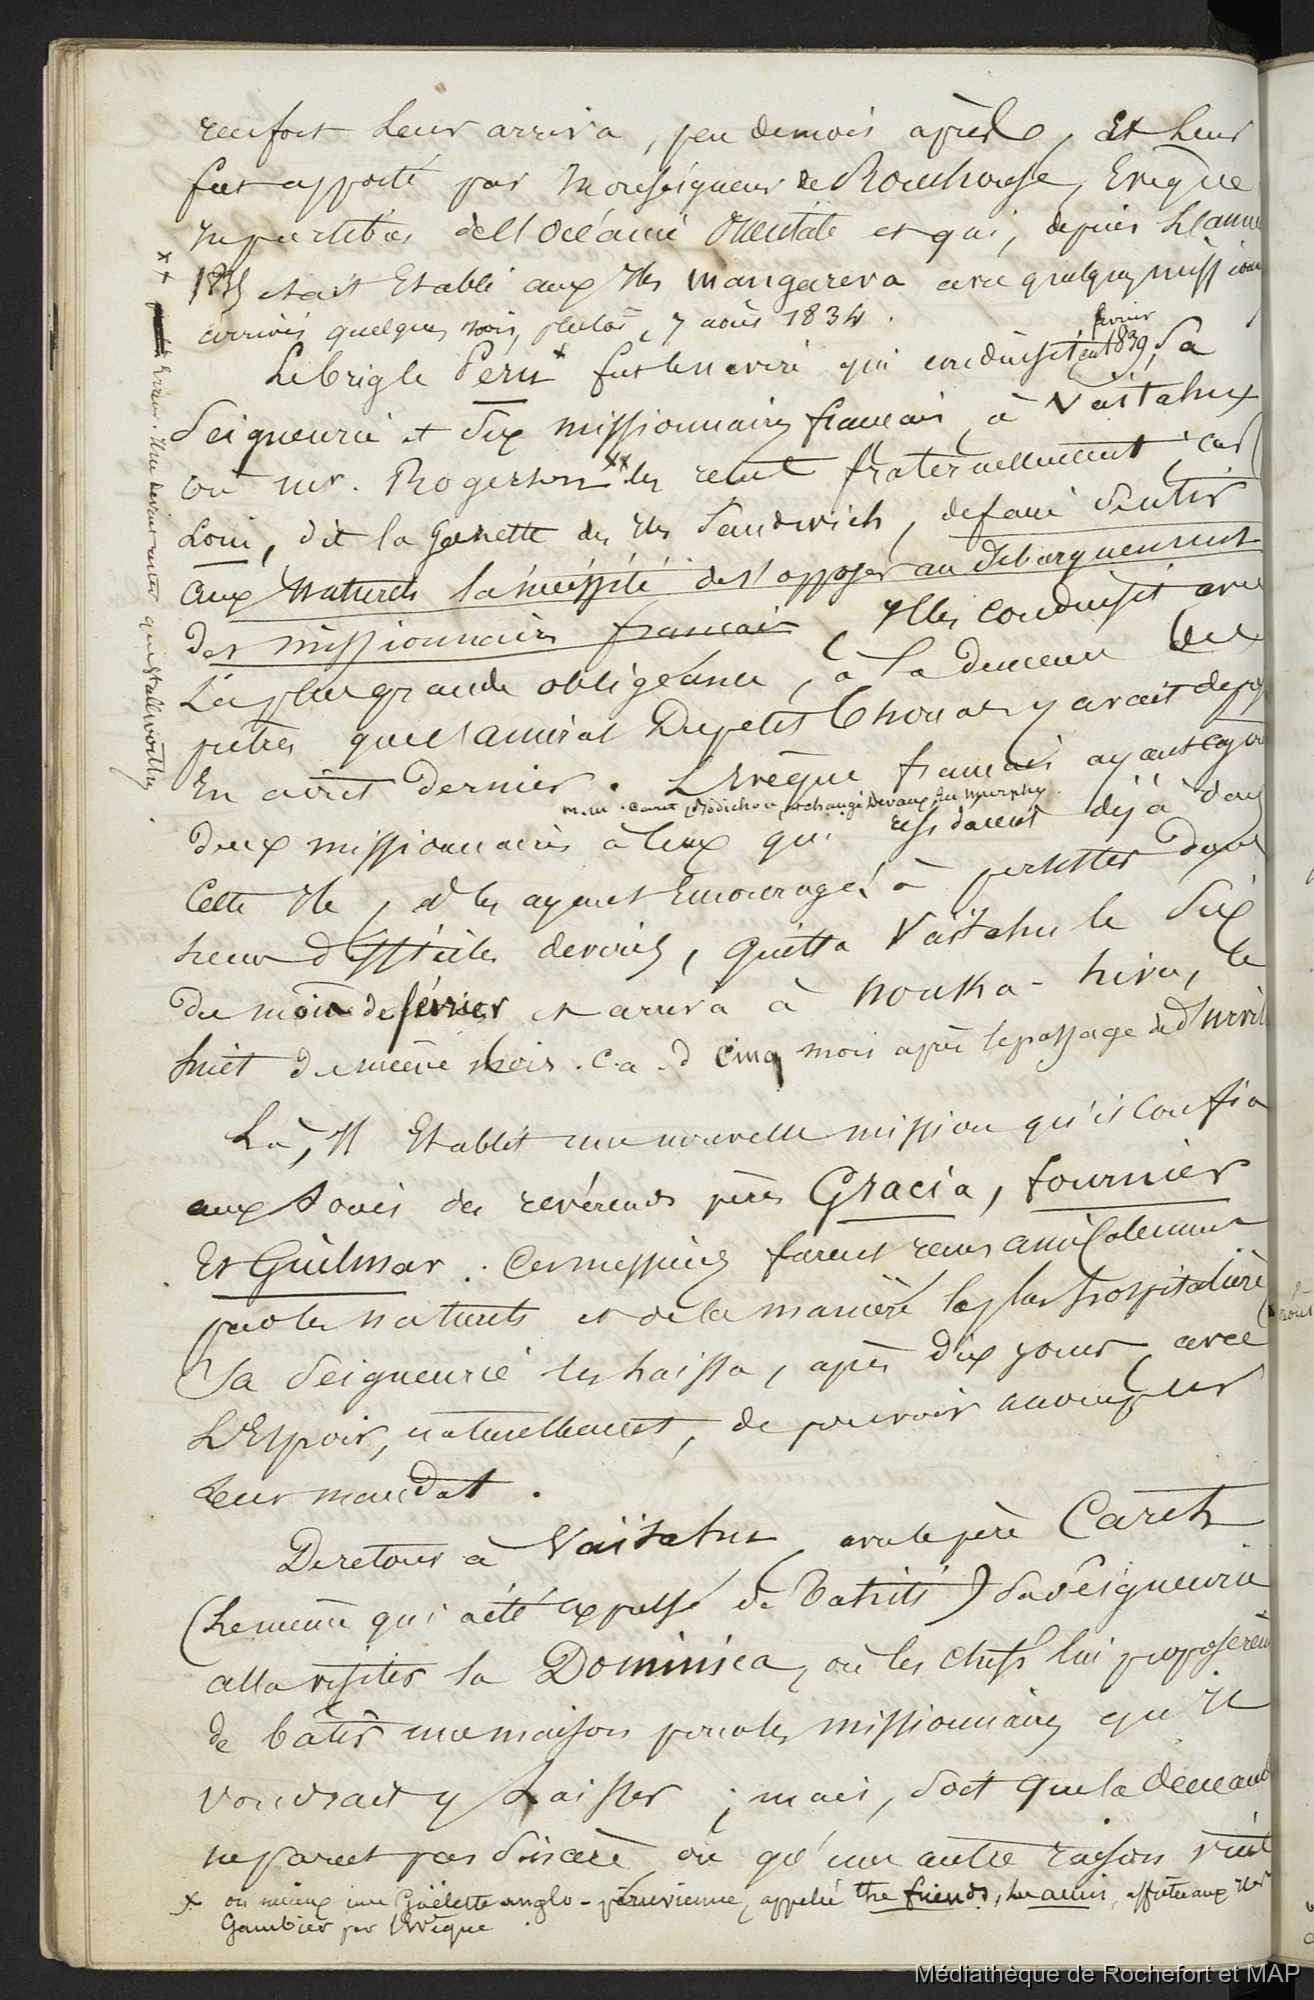 renfort leur arriva, peu de mois après, et leur
fut apporté par Monseigneur de Rouchouse, Evêque
in partibus de l'Océanie Orientale et qui, depuis l'année
1835 était Etabli aux Iles Mangareva avec quelques mission
arrivés quelques mois plutôt, 7 août 1834.
février
Le brig le Peru x fut le navire qui conduisit en 1839, Sa
Seigneurie et Six missionnaires français, à Vaitahu
où mr. Rogerson xx les reçut fraternellement car
Loin, dit la Gazette des Iles Sandwich, de faire Sentir
aux Naturels la nécéssité de s'opposer au Débarquement
Des missionnaires francais, Il les conduisit avec
La plus grande obligeance, à La Demeure des
prêtres que l'amiral Dupetit Thouars y avait déposé
En août Dernier. L'Evêque francais ayant
m.m. Caret, Bodichou, et changé Devaux en Murphy.
Deux missionnaires à Ceux qui résidaient déjà dans
Cette Ile, et les ayant Encouragés à persister dans
Leurs Difficiles devoirs, quitta Vaitahu le Six
du mois de février et arriva à Nouka-hiva, le
huit du même mois. c.a.d cinq mois après le passage de d'Urvil
Là, Il Etablit une nouvelle mission qu'il confia
aux soins des révérends pères Gracia, fournier
Et Guilmar. Ces messieurs furent reçus amicalement
par les naturels et de la manière la plus hospitalière
Sa Seigneurie les Laissa, après Dix jours, avec
L'Espoir, naturellement, de pouvoir accomplir
Leur mandat.
De retour à Vaïtahu, avec le père Caret
(Le même qui a été expulsé de Tahiti) Sa Seigneurie
alla visiter la Dominica, où les chefs lui proposèren
de bâtir une maison pour les missionnaires qu'Il
voudrait y Laisser ; mais, Soit que la demand
ne parut pas Sincère ou qu'une autre raison vint
x ou mieux une Goëlette anglo-péruvienne, appelée the friends, Les amis, affrétée aux Iles
Gambier par l'Evêque
xx Erreur. Il ne devait rester que Stallworthy
Médiathèque de Rochefort et MAP